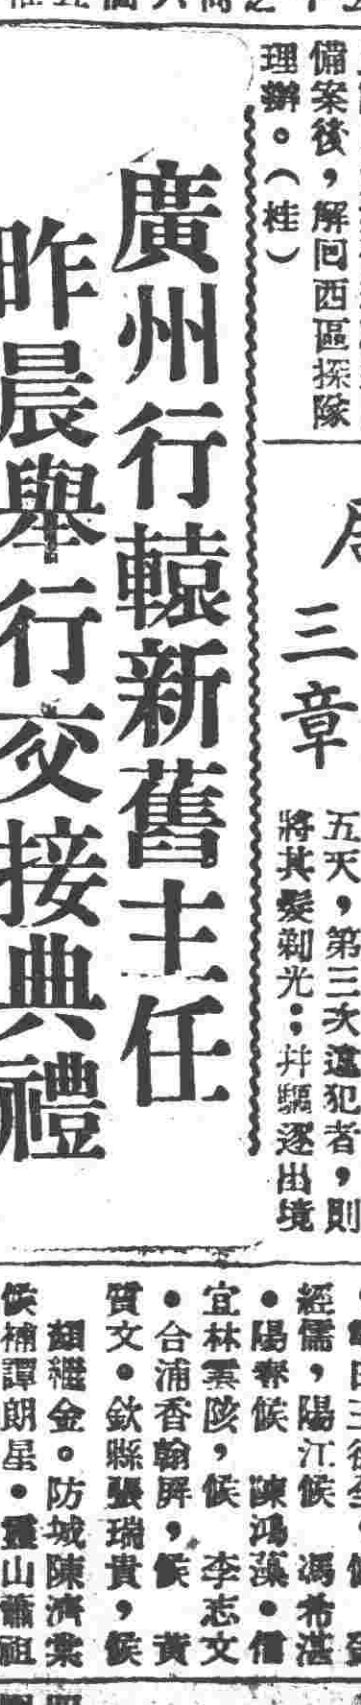 備案後，解回西區探隊
理辦。（桂）
三章
五天，第三次違犯者，則
將其髮剃光；幷驅逐出境
廣州行轅新舊主任
昨晨舉行交接典禮
經儒，陽江候 馮希湛
・陽春候 陳鴻藻・信
宜林雲陔，候 李志文
・合浦香翰屏，候 黃
質文・欽縣張瑞貴，候
顏繼金。防城陳濟棠
候補譚朗星・靈山蕭祖